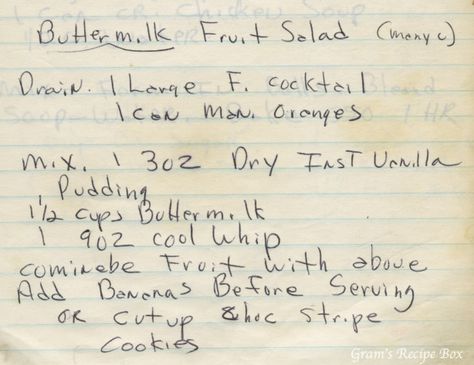 Buttermilk Fruit Salad (Mary C)
Drain. 1 Large F. cocktail
1 can man. oranges
mix. 1 3oz Dry Inst Vanilla
Pudding
1 1/2 cups Buttermilk
1 9oz cool whip
cominebe Fruit with above
Add Bananas Before Serving
or cut up choc stripe
Cookies
Gram's Recipe Box